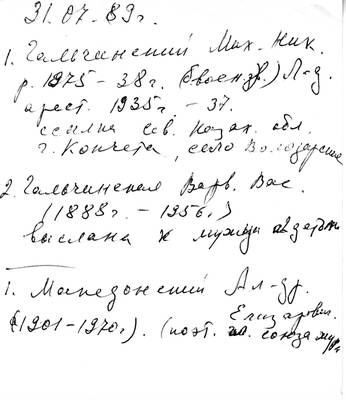 31.07.89г.
1. Гальчинский Мих. Ник.
р. 1875 – 38г. Л-д.
арест. 1935г. – 37.
ссылка сев. казах. обл.
г. Кокчета, село Володарское
2. Гальчинская Варв. Вас.
(1888г. – 1956.)
выслана к мужу
1. Македонский Ал-др.
Елизаров.
(1901–1970г.). (поэт. чл. союза